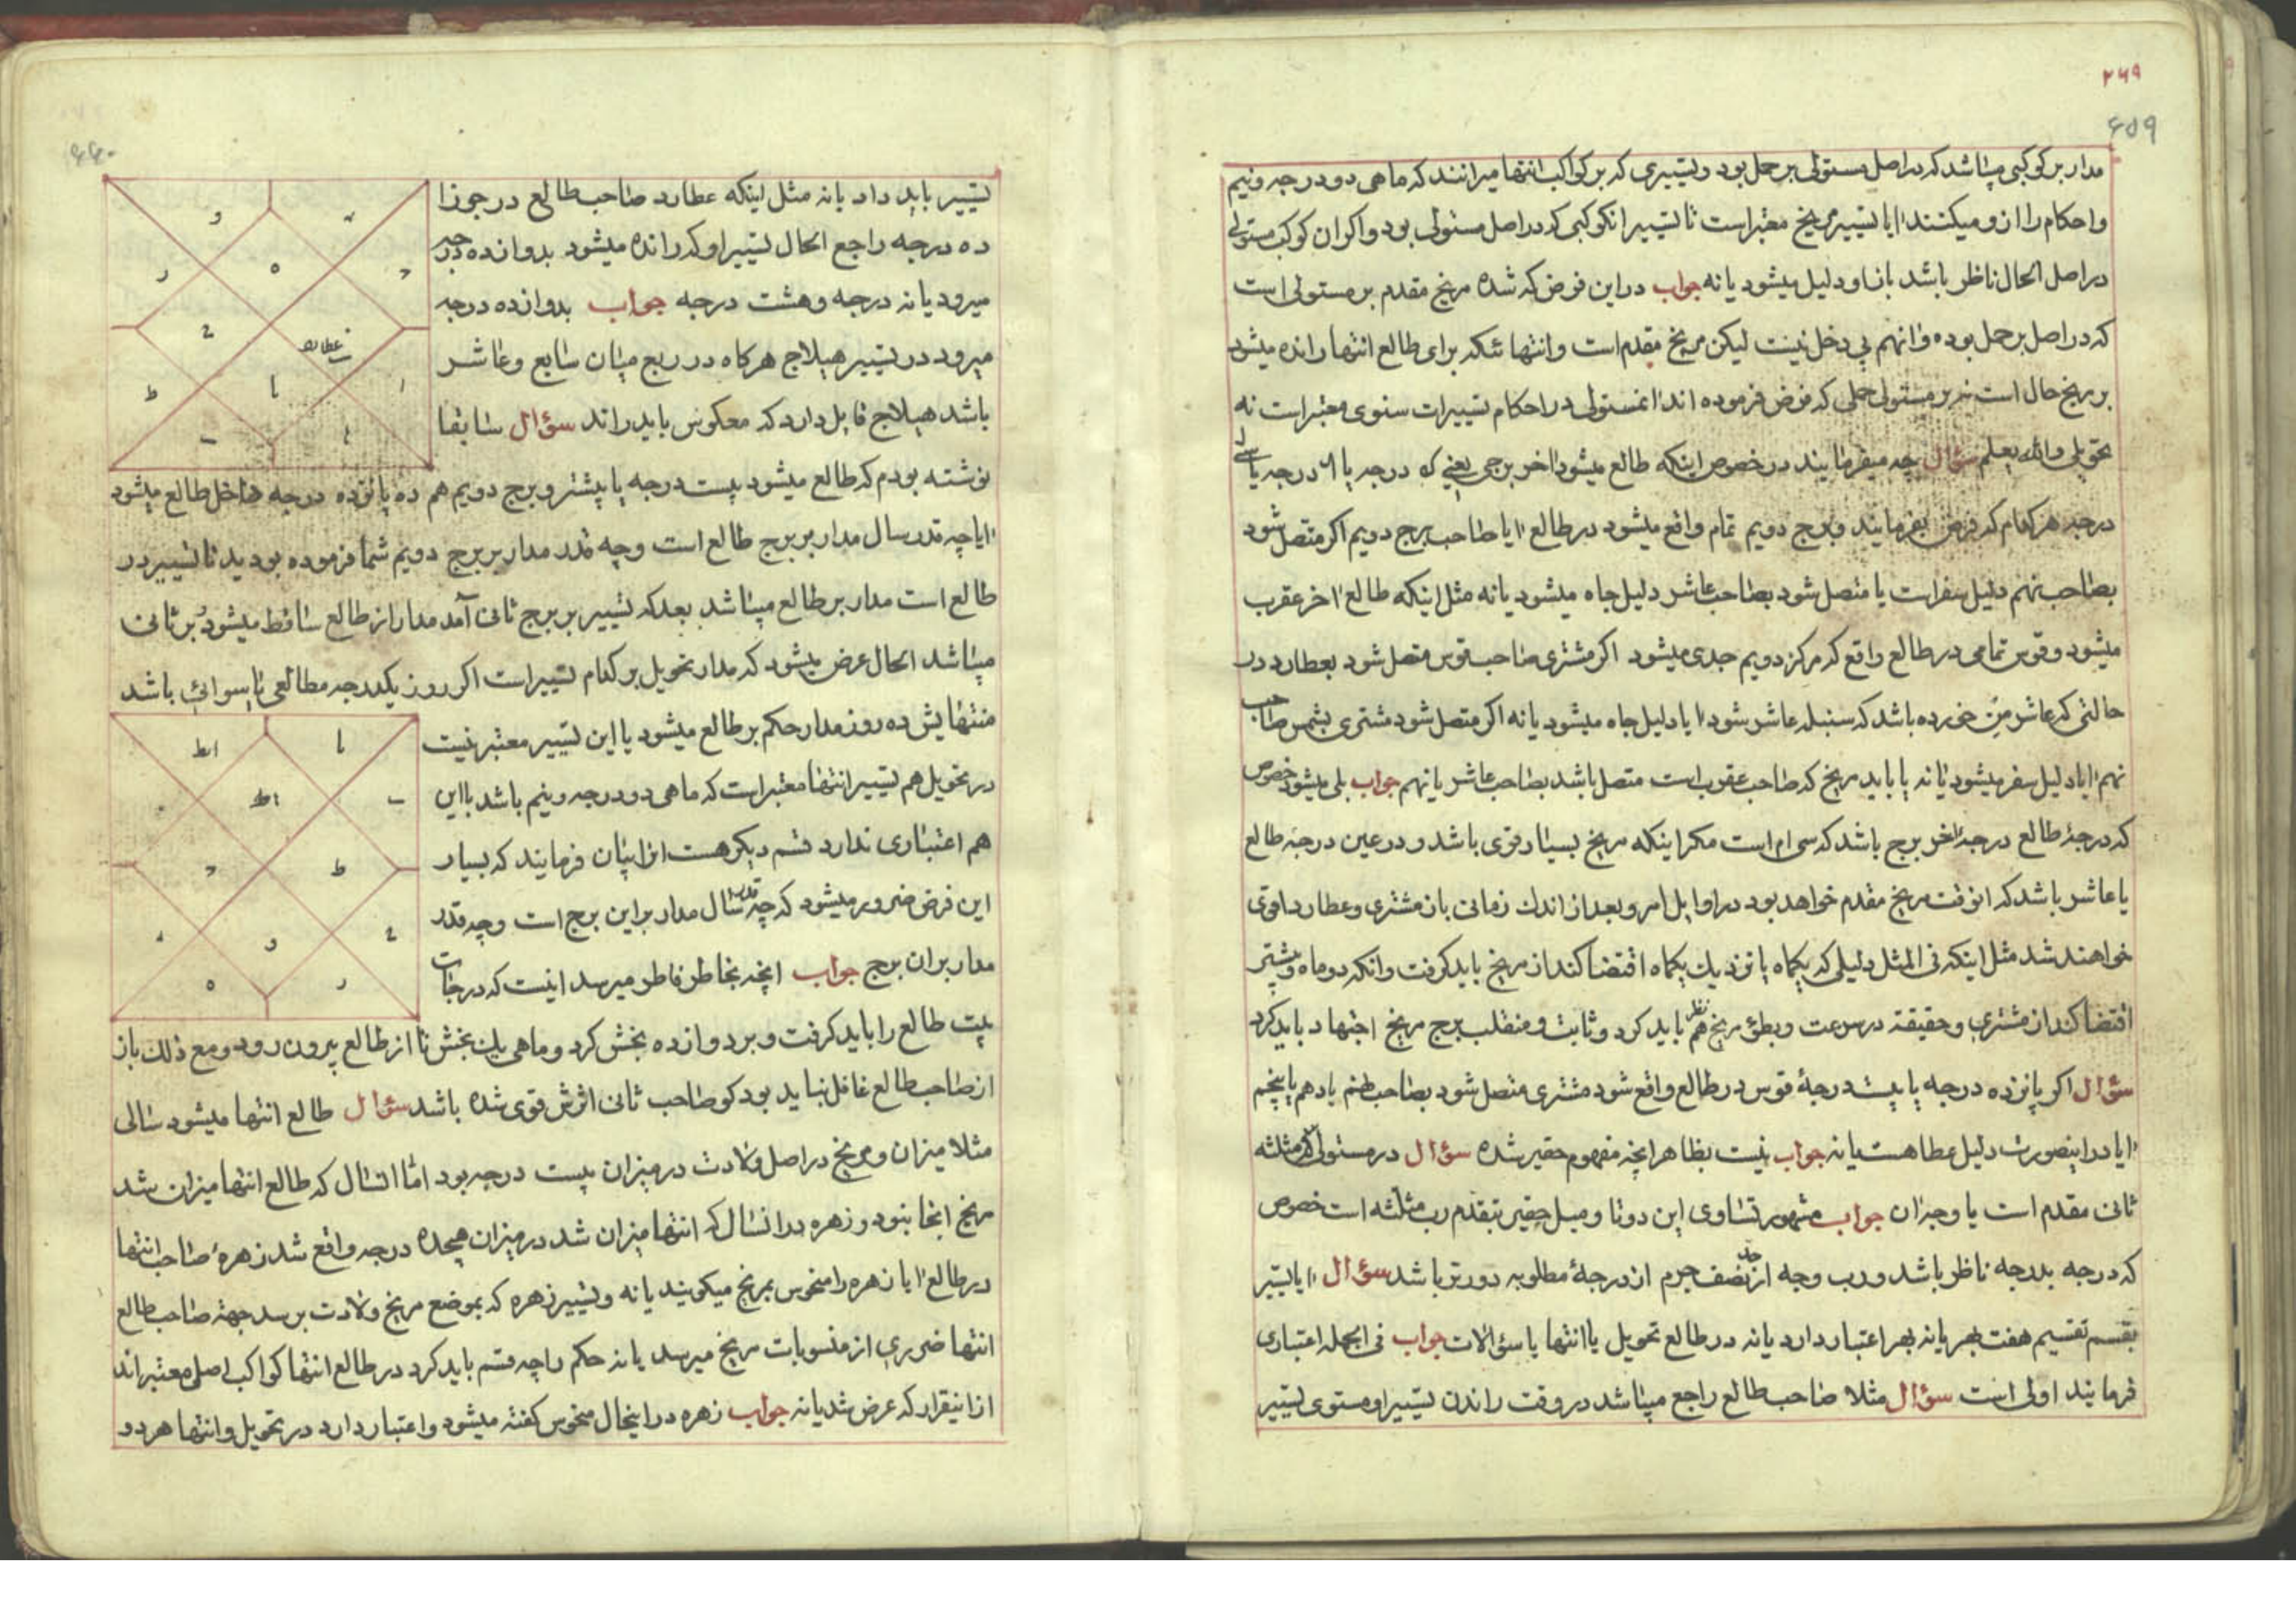 ۲۶۹
۶۵۹
مدار بر کوکبی میباشد که در اصل مستولی بر حمل بود و تسییری که بر کواکب انتها میرانند که ماهی دو درجه و نیم
و احکام را ازو میکنند ایا تسییر مریخ معتبر است تا تسییر انکوکبی که در اصل مستولی بود و اکر ان کوکب مستولی
در اصل الحال ناظر باشد باز او دلیل میشود یا نه جواب در این فرض که شده مریخ مقدم بر مستولی است
که در اصل بر حمل بوده و انهم بی دخل نیست لیکن مریخ مقدم است و انتهائیکه برای طالع انتها رانده میشود
بر مریخ حال است نه بر مستولی حملی که فرض فرموده اند انمستولی در احکام تسییرات سنوی معتبر است نه
تحویلی والله یعلم سؤال چه میفرمایند در خصوص اینکه طالع میشود اخر برجی یعنی که درجه یا درجه یا
درجه هر کدام که فرض بفرمایند و برج دویم تمام واقع میشود در طالع ایا صاحب برج دویم اکر متصل شود
بصاحب نهم دلیل سفر است یا متصل شود بصاحب عاشر دلیل جاه میشود یا نه مثل اینکه طالع اخر عقرب
میشود و قوس تمامی در طالع واقع که مرکز دویم جدی میشود اکر مشتری صاحب قوس متصل شود بعطارد در
حالتی که عاشر من خورده باشد که سنبله عاشر شود ایا دلیل جاه میشود یا نه اکر متصل شود مشتری بشمس صاحب
نهم ایا دلیل سفر میشود یا نه یا باید مریخ که صاحب عقرب است متصل باشد بصاحب عاشر یا نهم جواب بلی میشود خصوص
که درجهٔ طالع درجهٔ اخر برج باشد که سی ام است مکر اینکه مریخ بسیار قوی باشد و در عین درجهٔ طالع
یا عاشر باشد که انوقت مریخ مقدم خواهد بود در اوایل امر و بعد از اندک زمانی باز مشتری و عطارد اقوی
خواهند شد مثل اینکه فی المثل دلیلی که یکماه یا نزدیک یکماه اقتضا کند از مریخ باید کرفت و انکه دو ماه و بیشتر
اقتضا کند از مشتری و حقیقة در سرعت و بطؤ مریخ هم نظر باید کرد و ثابت و منقلب برج مریخ اجتهاد باید کرد
سؤال اکر پانزده درجه یا بیست درجهٔ قوس در طالع واقع شود مشتری متصل شود بصاحب هفتم یا دهم یا پنجم
ایا در اینصورت دلیل عطا هست یا نه جواب نیست بظاهر انچه مفهوم حقیر شده سؤال در مستولی که مثلثه
ثانی مقدم است یا وجه ان جواب مشهور تساوی این دوتا و میل حقیر بتقدم رب مثلثه است خصوص
که درجه بدرجه ناظر باشد و رب وجه از حد نصف جرم از درجهٔ مطلوبه دورتر باشد سؤال ایا تسییر
بقسم تقسیم هفت بهر یا نه بهر اعتبار دارد یا نه در طالع تحویل یا انتها یا سؤالات جواب فی الجمله اعتباری
فرمایند اولی است سؤال مثلا صاحب طالع راجع میباشد در وقت راندن تسییر او مستوی تسییر
۶۶۰
تسییر باید داد یا نه مثل اینکه عطارد صاحب طالع در جوزا
ده درجه راجع الحال تسییر او که رانده میشود بدوازده درجه
میرود یا نه درجه و هشت درجه جواب بدوازده درجه
میرود در تسییر هیلاج هرکاه در ربع میان سابع و عاشر
باشد هیلاج قایل دارد که معکوس باید راند سؤال سابقا
نوشته بودم که طالع میشود بیست درجه یا بیشتر و برج دویم هم ده پانزده درجه داخل طالع میشود
ایا چه قدر سال مدار بر برج طالع است و چه قدر مدار بر برج دویم شما فرموده بودید تا تسییر در
طالع است مدار بر طالع میباشد بعد که تسییر بر برج ثانی آمد مدار از طالع ساقط میشود بر ثانی
میباشد الحال عرض میشود که مدار تحویل بر کدام تسییر است اکر روز یکدرجه مطالعی یا سوائی باشد
منتهایش ده روز مدار حکم بر طالع میشود یا این تسییر معتبر نیست
در تحویل هم تسییر انتها معتبر است که ماهی دو درجه و نیم باشد یا این
هم اعتباری ندارد قسم دیکر هست انرا بیان فرمایند که بسیار
این فرض ضرور میشود که چه قدر سال مدار بر این برج است و چه قدر
مدار بر ان برج جواب انچه بخاطر فاطر میرسد اینست که درجات
بیت طالع را باید کرفت و بر دوازده بخش کرد و ماهی یک بخش تا از طالع بیرون رود و مع ذلک باز
از صاحب طالع غافل نباید بود کو صاحب ثانی اثرش قوی شده باشد سؤال طالع انتها میشود سالی
مثلا میزان و مریخ در اصل ولادت در میزان بیست درجه بود اما انسال که طالع انتها میزان شد
مریخ انجا نبود و زهره در انسال که انتها میزان شد در میزان هیجده درجه واقع شد زهره صاحب انتها
در طالع ایا زهره را منحوس بمریخ میکویند یا نه و تسییر زهره که بموضع مریخ ولادت برسد جهة صاحب طالع
انتها ضرری از منسوبات مریخ میرسد یا نه حکم را چه قسم باید کرد در طالع انتها کواکب اصل معتبر اند
از اینقرار که عرض شد یا نه جواب زهره در اینحال منحوس کفته میشود و اعتبار دارد در تحویل و انتها هر دو
عطارد